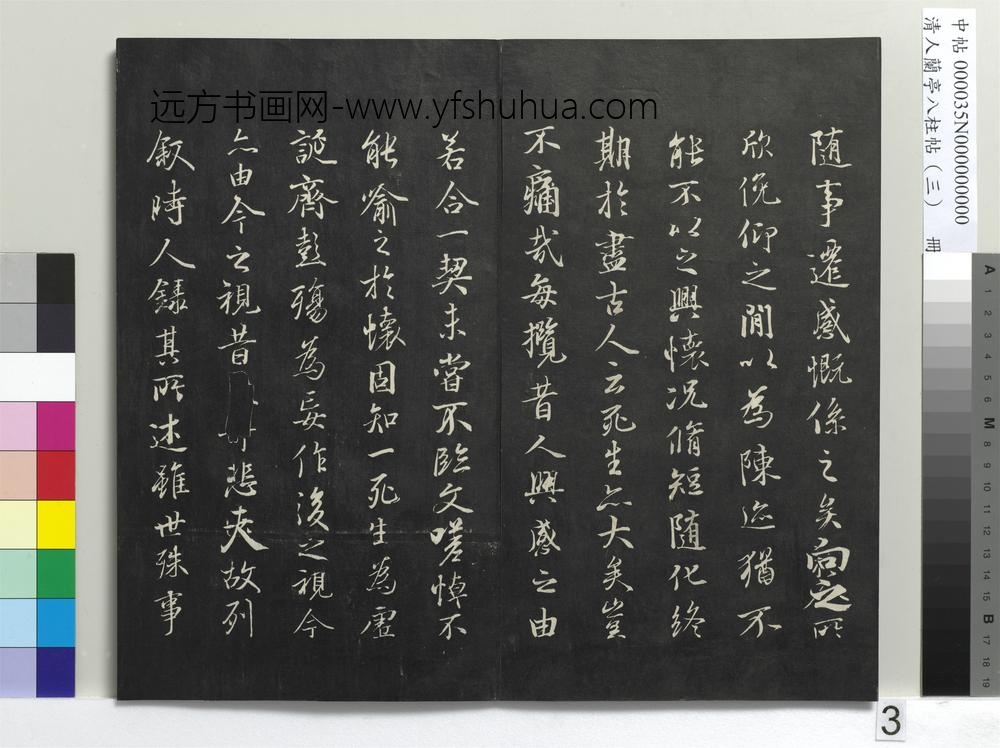 中帖 000035N000000000
清人蘭亭八柱帖(三) 冊
远方书画网-www.yfshuhua.com
随事遷感慨係之矣向之所
欣俛仰之閒以為陳迹猶不
能不以之興懷況脩短随化終
期於盡古人云死生亦大矣豈
不痛哉每攬昔人興感之由
若合一契未嘗不臨文嗟悼不
能喻之於懷固知一死生為虛
誕齊彭殤為妄作後之視今
亦由今之視昔悲夫故列
叙時人錄其所述雖世殊事
A 1 2 3 4 5 6 M 8 9 10 11 12 13 14 15 B 17 18 19
3